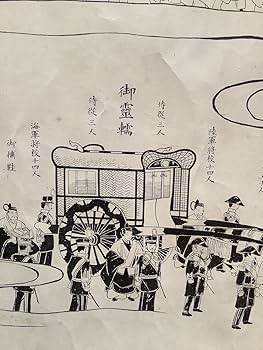 陸軍将校十四人
侍從三人
御靈轜
侍從三人
海軍将校十四人
御挿鞋